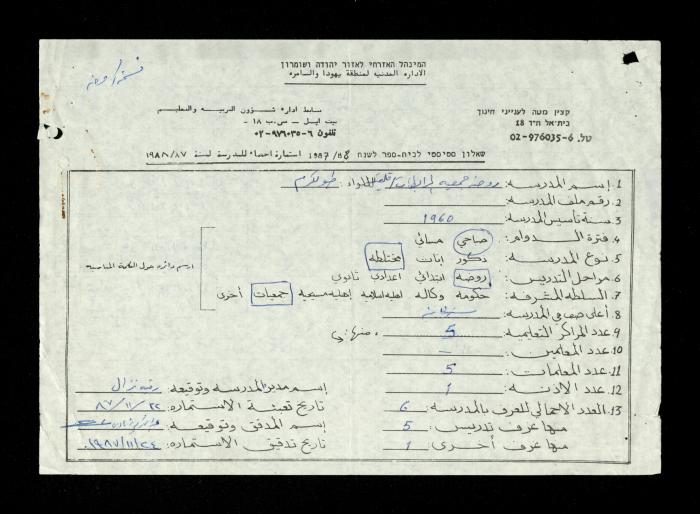 המינהל האזרחי לאזור יהודה ושומרון
الادارة المدنية لمنطقة يهودا والسامرة
ضابط ادارة شؤون التربية والتعليم
بيت ايل - ص.ب ١٨
تلفون ٦-٩٧٦٠٣٥-٠٢
קצין מטה לענייני חינוך
בית־אל ת״ד 18
טל. 02-976035-6
שאלון סטטיסטי לבית-ספר לשנת 1987/88 استمارة احصاء للمدرسة لسنة ١٩٨٨/٨٧
1. إسم المدرسة: روضة جمعية المرابطات/قلقيلية اللواء: طولكرم
2. رقم ملف المدرسة:
3. سنة تأسيس المدرسة: 1960
4. فترة الدوام: صباحي مسائي
5. نوع المدرسة: ذكور اناث مختلطة
6. مراحل التدريس: روضة ابتدائي اعدادي ثانوي
7. السلطة المشرفة: حكومة وكالة اهلية اسلامية اهلية مسيحية جمعيات أخرى
ارسم دائرة حول الكلمة المناسبة
8. أعلى صف في المدرسة:
9. عدد المراكز التعليمية: 5 منها:
10. عدد المعلمين: –
11. عدد المعلمات: 5
12. عدد الاذنة: 1
13. العدد الاجمالي للغرف بالمدرسة: 6
منها غرف تدريس: 5
منها غرف أخرى: 1
إسم مدير المدرسة وتوقيعه: رقية نزال
تاريخ تعبئة الاستمارة: ٨٧/١١/٢٢
إسم المدقق وتوقيعه:
تاريخ تدقيق الاستمارة: ١٩٨٧/١١/٢٤